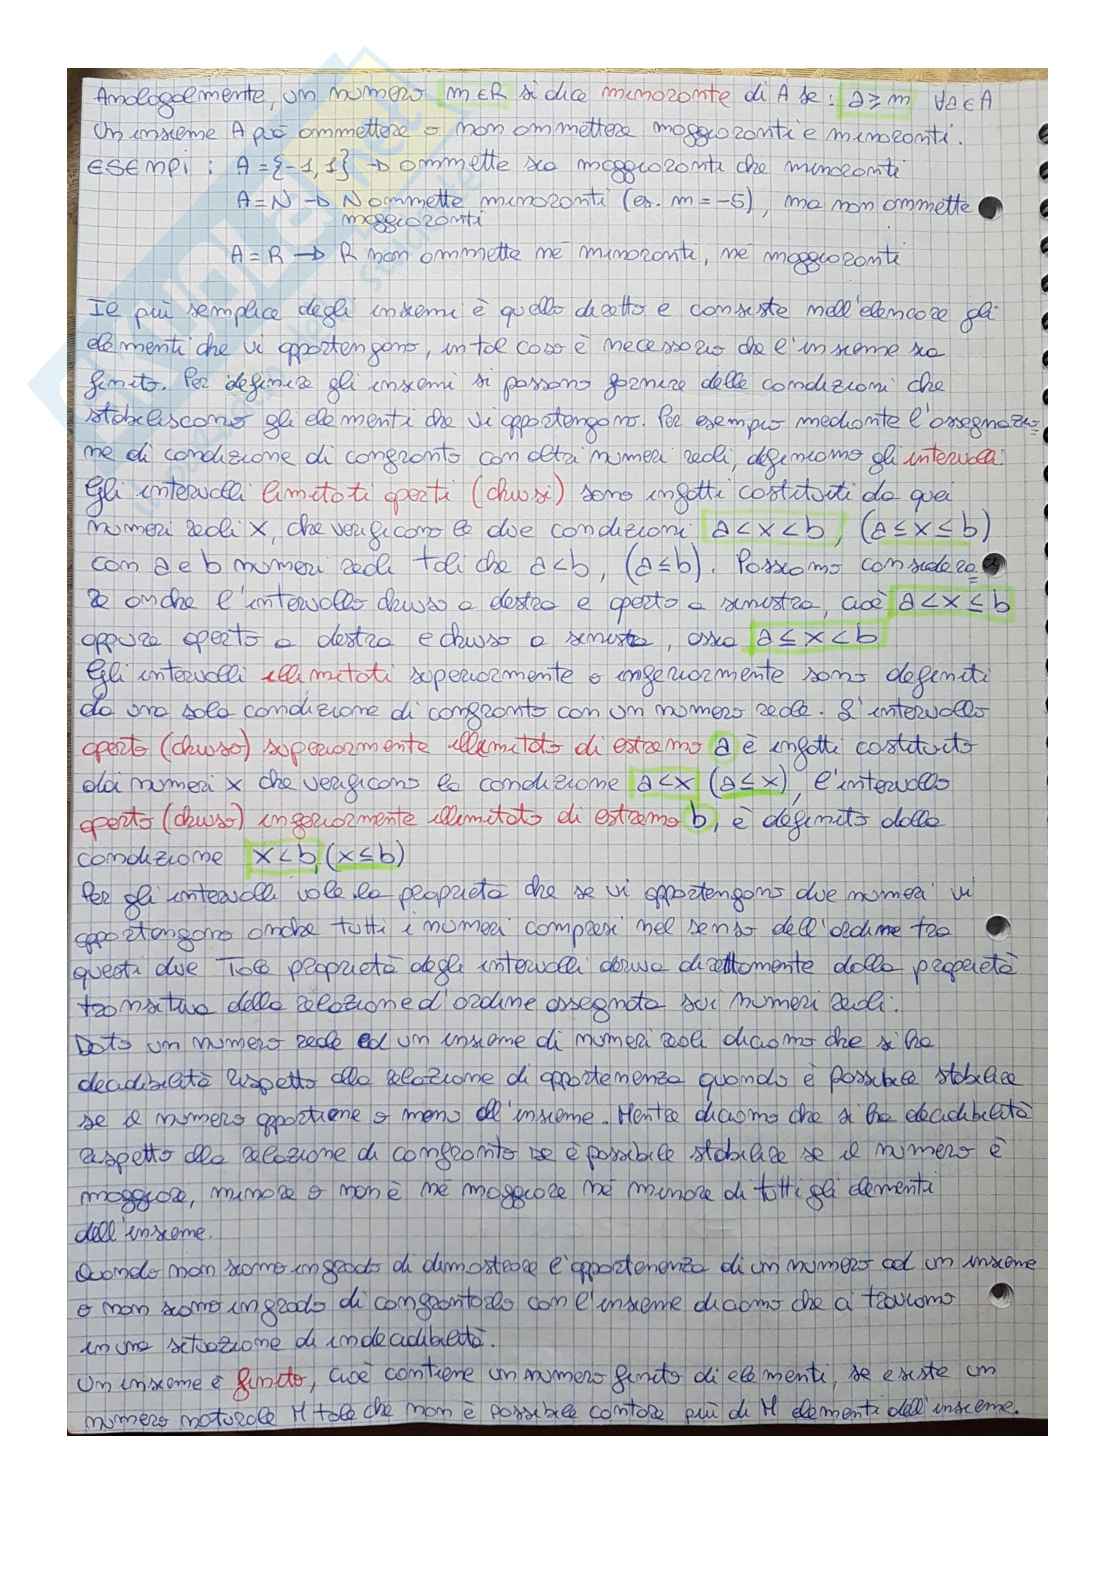 Analogamente, un numero m∈R si dice minorante di A se: a≥m ∀a∈A
Un insieme A può ammettere o non ammettere maggioranti e minoranti.
ESEMPI: A={-1,1} → ammette sia maggioranti che minoranti
A=N → N ammette minoranti (es. m=-5), ma non ammette
maggioranti
A=R → R non ammette né minoranti, né maggioranti
Il più semplice degli insiemi è quello diretto e consiste nell'elencare gli
elementi che vi appartengono, in tal caso è necessario che l'insieme sia
finito. Per definire gli insiemi si possono fornire delle condizioni che
stabiliscono gli elementi che vi appartengono. Per esempio mediante l'assegnazio=
ne di condizione di confronto con altri numeri reali, definiamo gli intervalli.
Gli intervalli limitati aperti (chiusi) sono infatti costituiti da quei
numeri reali x, che verificano le due condizioni a<x<b, (a≤x≤b)
con a e b numeri reali tali che a<b, (a≤b). Possiamo considera=
re anche l'intervallo chiuso a destra e aperto a sinistra, cioè a<x≤b
oppure aperto a destra e chiuso a sinistra, ossia a≤x<b
Gli intervalli illimitati superiormente o inferiormente sono definiti
da una sola condizione di confronto con un numero reale. L'intervallo
aperto (chiuso) superiormente illimitato di estremo a è infatti costituito
dai numeri x che verificano la condizione a<x (a≤x), l'intervallo
aperto (chiuso) inferiormente illimitato di estremo b, è definito dalla
condizione x<b, (x≤b)
Per gli intervalli vale la proprietà che se vi appartengono due numeri vi
appartengono anche tutti i numeri compresi nel senso dell'ordine tra
questi due. Tale proprietà degli intervalli deriva direttamente dalla proprietà
transitiva della relazione d'ordine assegnata sui numeri reali.
Dato un numero reale ed un insieme di numeri reali diciamo che si ha
decidibilità rispetto alla relazione di appartenenza quando è possibile stabilire
se il numero appartiene o meno all'insieme. Mentre diciamo che si ha decidibilità
rispetto alla relazione di confronto se è possibile stabilire se il numero è
maggiore, minore o non è né maggiore né minore di tutti gli elementi
dell'insieme.
Quando non siamo in grado di dimostrare l'appartenenza di un numero ad un insieme
o non siamo in grado di confrontarlo con l'insieme diciamo che ci troviamo
in una situazione di indecidibilità.
Un insieme è finito, cioè contiene un numero finito di elementi, se esiste un
numero naturale M tale che non è possibile contare più di M elementi dell'insieme.